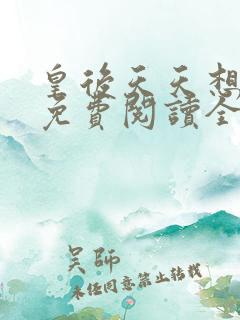 皇後天天想
免費閱讀全
吴師
未任同意禁止转载